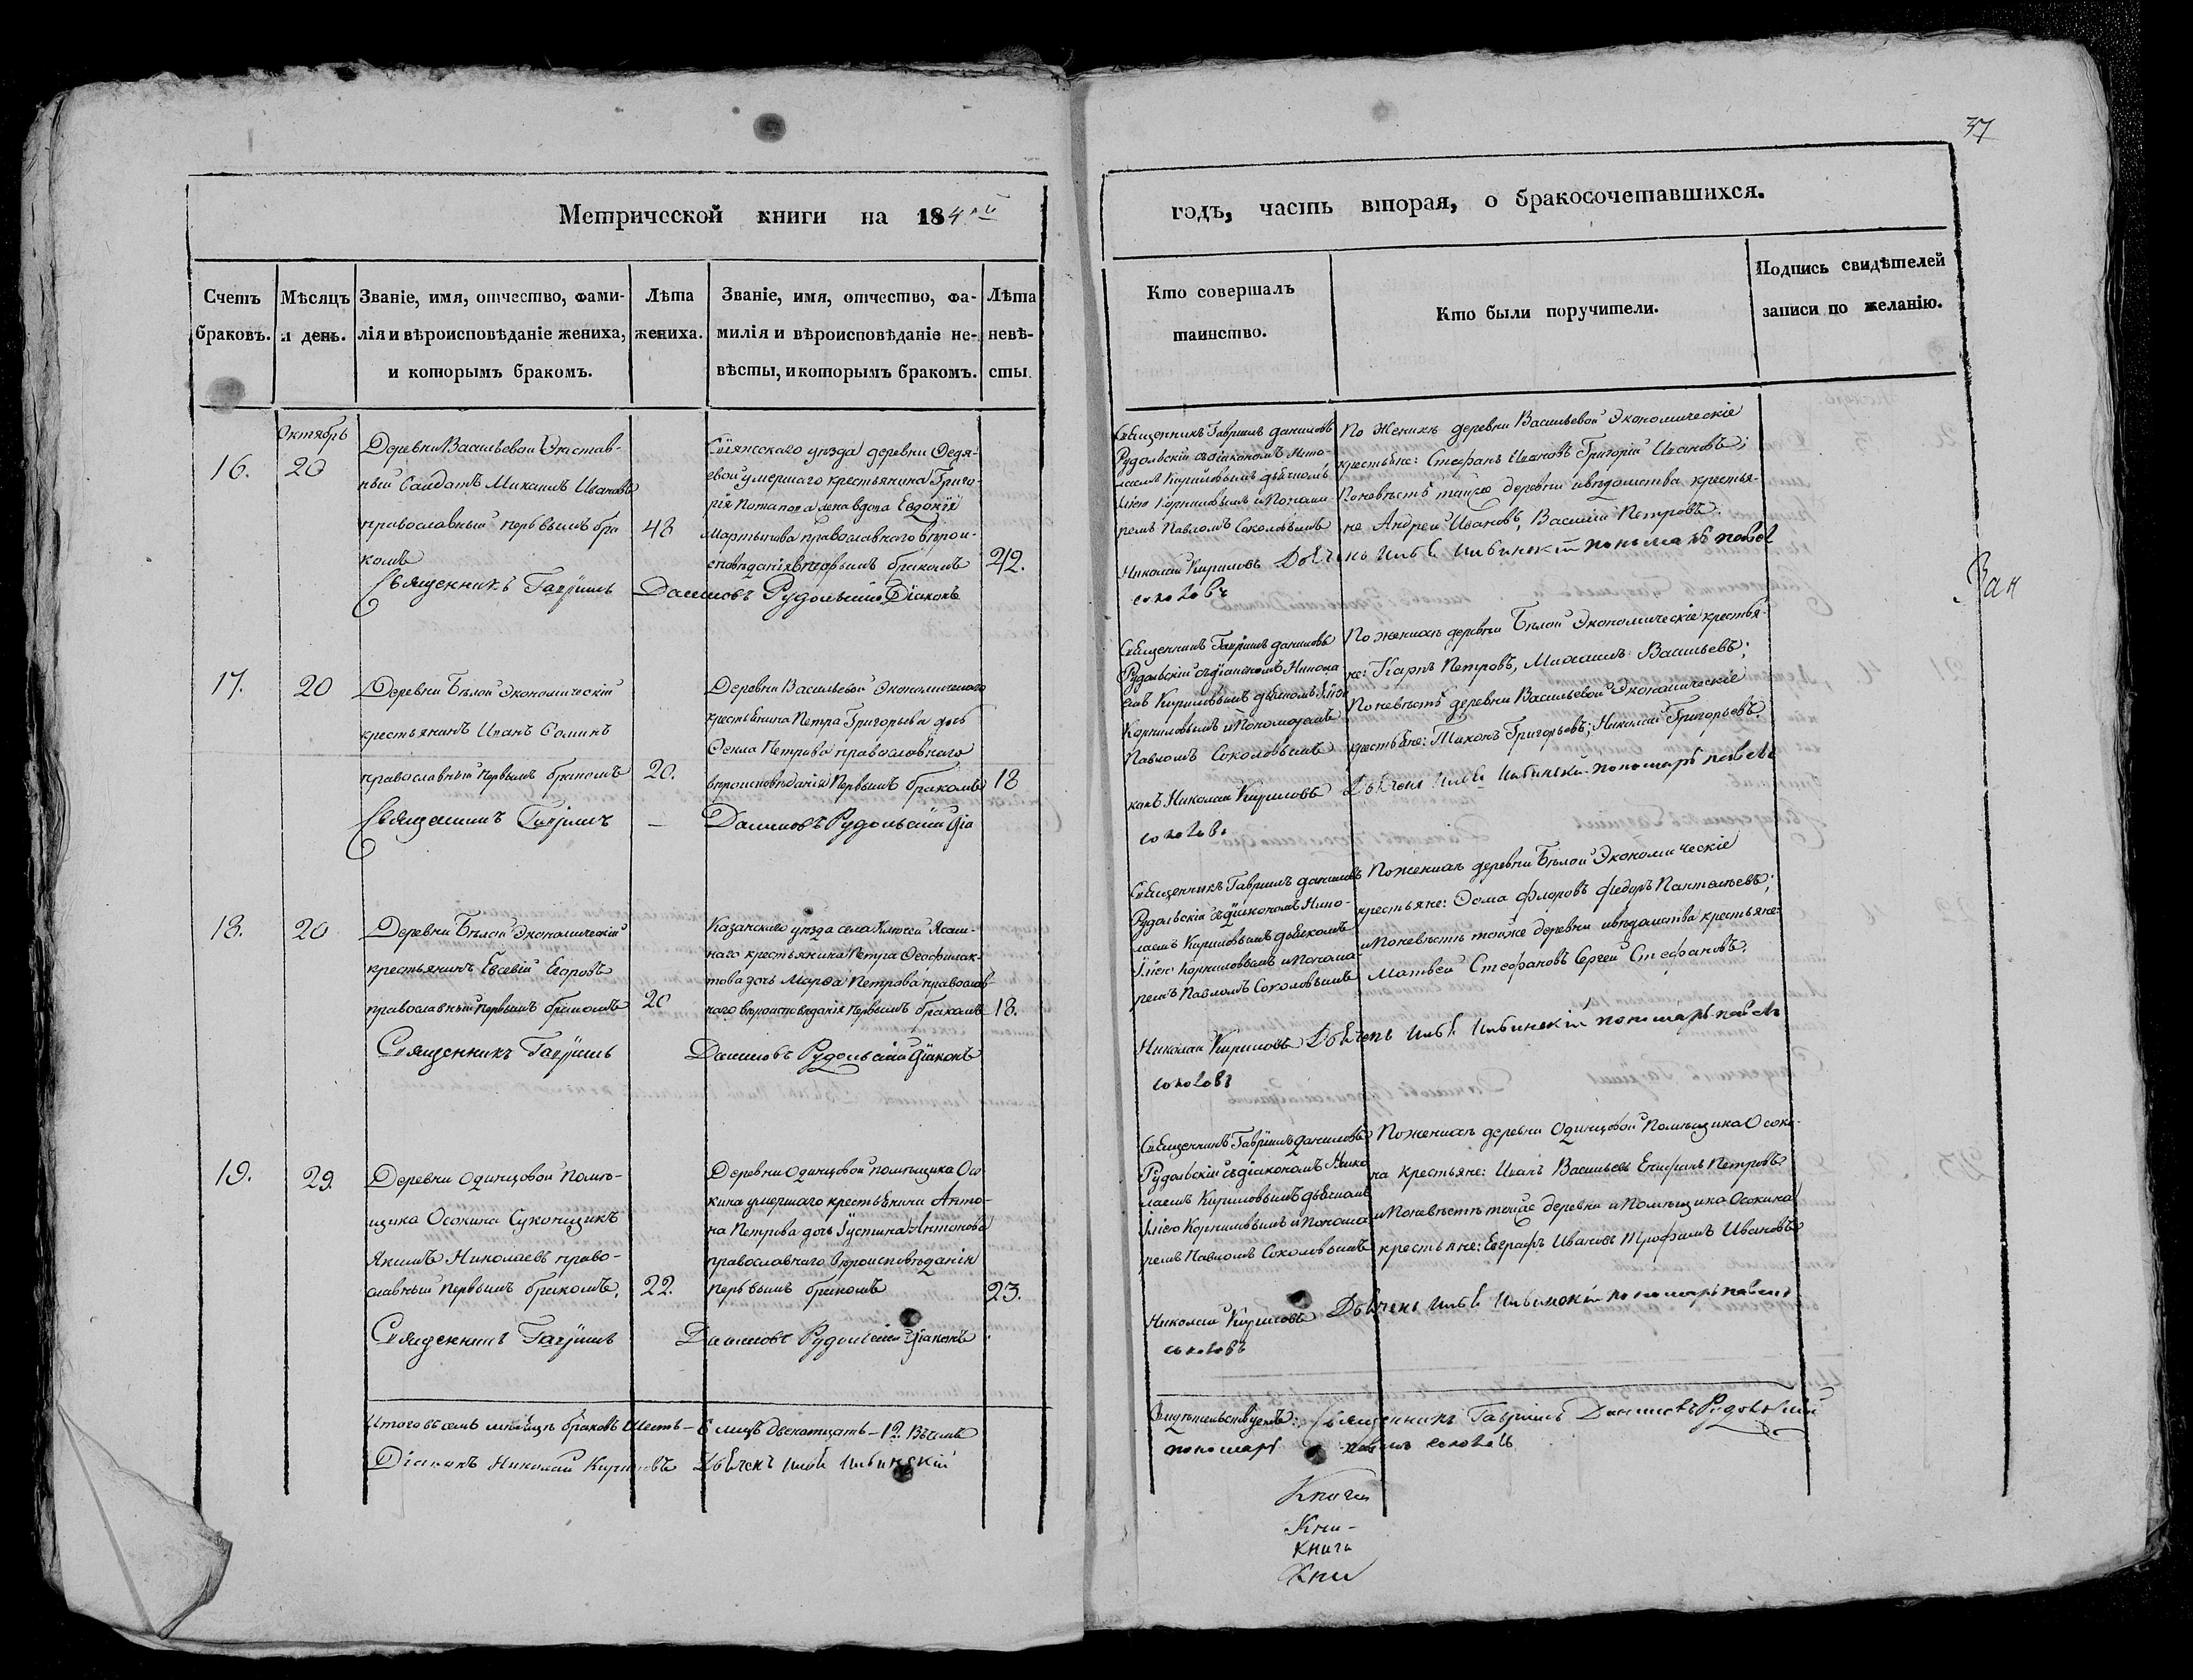 37
Метрической книги на 184
годъ, часть вторая, о бракосочетавшихся.
Счетъ браковъ.
Мѣсяцъ и день.
Званіе, имя, отчество, фами-
лія и вѣроисповѣданіе жениха,
и которымъ бракомъ.
Лѣта жениха.
Званіе, имя, отчество, фа-
милія и вѣроисповѣданіе не-
вѣсты, и которымъ бракомъ.
Лѣта невѣ-
сты.
Кто совершалъ
таинство.
Кто были поручители.
Подпись свидѣтелей
записи по желанію.
Октябрь
16.
20
Деревни Васильевой
ный Солдатъ Михаилъ Ивановъ
православный первымъ бра
комъ
48
Свіяжскаго уѣзда деревни Федя-
евой умершаго крестьянина Григо-
рія Потапова жена вдова Евдокія
Мартынова православнаго вѣрои-
сповѣданія вторымъ бракомъ
42.
Священникъ Гавріилъ Даниловъ Рудольскій Діаконъ
Священникъ Гавриилъ Даниловъ
Рудольскій съ діакономъ Нико-
лаемъ Кириловымъ дьячкомъ
Іліею Корниловымъ и Понома-
ремъ Павломъ Соколовымъ
По Женихѣ деревни Васильевой Экономическіе
крестьяне: Стефанъ Ивановъ Григорій Ивановъ;
По невѣстѣ тойже деревни и вѣдомства крестья-
не Андрей Ивановъ, Василій Петровъ.
Николай Кириловъ Дьячекъ пономарь павел
соколовъ
Зап
17.
20
Деревни Бѣлой Экономическій
крестьянинъ Иванъ Соминъ
православный первымъ бракомъ
20.
Деревни Васильевой Экономическаго
крестьянина Петра Григорьева дочь
Фекла Петрова православнаго
вѣроисповѣданія Первымъ бракомъ
18
Священникъ Гавріилъ — Даниловъ Рудольскій Діа
Священникъ Гавріилъ Даниловъ
Рудольскій съ діакономъ Никола
емъ Кириловымъ дьячкомъ Іліею
Корниловымъ и Пономаремъ
Павломъ Соколовымъ
По женихѣ деревни Бѣлой Экономическіе крестья-
не: Карпъ Петровъ, Михаилъ Васильевъ;
По невѣстѣ деревни Васильевой Экономическіе
крестьяне: Тихонъ Григорьевъ; Николай Григорьевъ.
конъ Николай Кириловъ Дьячекъ пономарь павелъ
соколовъ
18.
20
Деревни Бѣлой Экономическій
крестьянинъ Евсевій Егоровъ
православный первымъ бракомъ
20
Казанскаго уѣзда села Ключей Ясаш-
наго крестьянина Петра Феофилак-
това дочь Марфа Петрова православ-
наго вѣроисповѣданія первымъ бракомъ
18.
Священникъ Гавріилъ Даниловъ Рудольскій Діаконъ
Священникъ Гавриилъ Даниловъ
Рудольскій съ діакономъ Нико-
лаемъ Кириловымъ дьячкомъ
Іліею Корниловымъ и Понома-
ремъ Павломъ Соколовымъ
По женихѣ деревни Бѣлой Экономическіе
крестьяне: Фома Флоровъ Федоръ Пантелѣевъ;
и По невѣстѣ тойже деревни и вѣдомства крестьяне:
Матвей Стефановъ Сергей Стефановъ.
Николай Кириловъ Дьячекъ пономарь павелъ
соколовъ
19.
29.
Деревни Одинцовой Помѣ-
щика Осокина Суконщикъ
Якимъ Николаевъ право-
славный первымъ бракомъ.
22.
Деревни Одинцовой помѣщика Осо
кина умершаго крестьянина Анто-
на Петрова дочь Іустина Антонова
православнаго вѣроисповѣданія
первымъ бракомъ
23.
Священникъ Гавріилъ Даниловъ Рудольскій Діаконъ
Священникъ Гавріилъ Даниловъ
Рудольскій съ діакономъ Нико
лаемъ Кириловымъ дьячкомъ
Іліею Корниловымъ и Понома
ремъ Павломъ Соколовымъ
По женихѣ деревни Одинцовой Помѣщика Осоки-
на крестьяне: Иванъ Васильевъ Епифанъ Петровъ
и По невѣстѣ тойже деревни и Помѣщика Осокина
крестьяне: Евграфъ Ивановъ Трофимъ Ивановъ
Николай Кириловъ Дьячекъ пономарь павелъ
соколовъ
Итого въ семъ мѣсяцѣ браковъ Шесть — 6 лицъ Двенатцать — 12. Въ чемъ
Діаконъ Николай Кириловъ Дьячекъ
Свидѣтельствуетъ: Священникъ Гавріилъ Даниловъ Рудольскій
пономарь павелъ соколовъ
Книга
Кни-
Книга
Кни